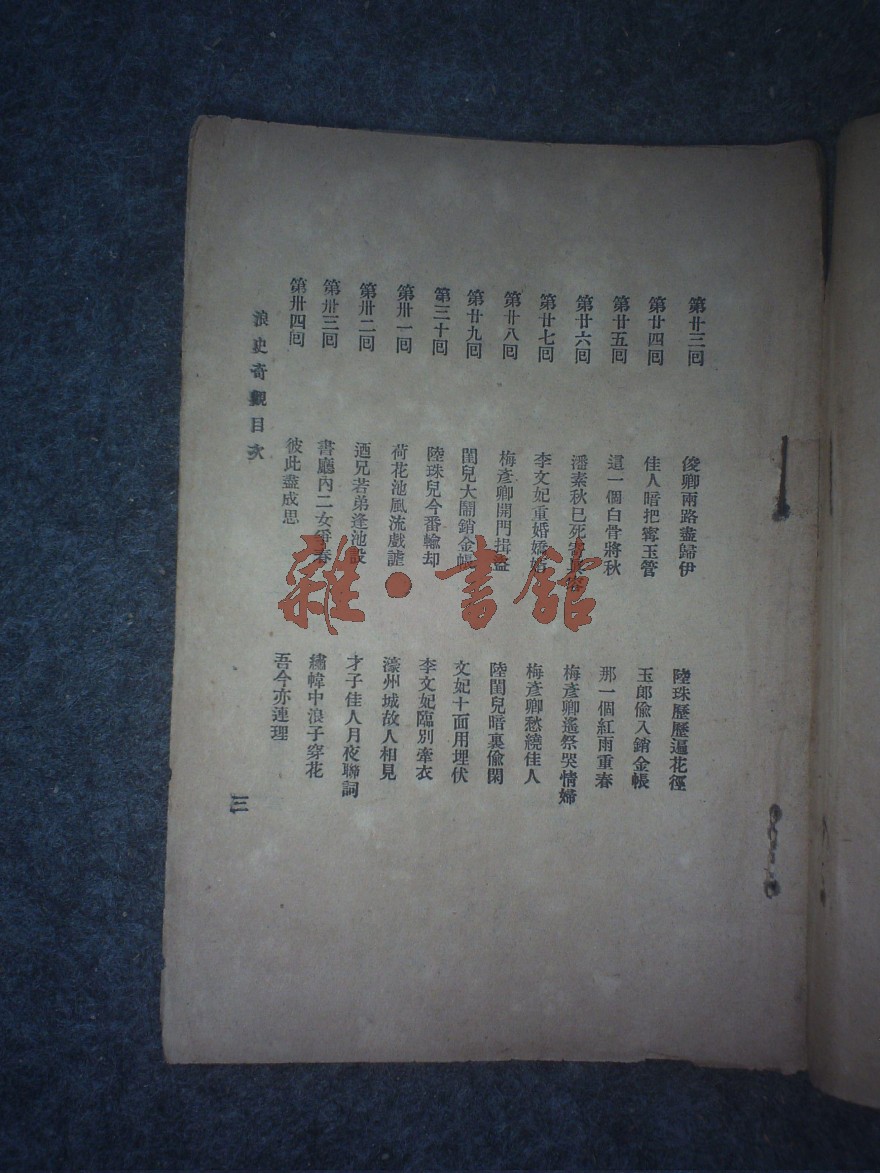 第廿三囘 俊卿兩路盡歸伊 陸珠歷歷遍花徑
第廿四囘 佳人暗把寗玉管 玉郎偷入銷金帳
第廿五囘 這一個白骨將秋 那一個紅雨重春
第廿六囘 潘素秋已死 梅彥卿遙祭哭情婦
第廿七囘 李文妃重婚嬌婿 梅彥卿愁繞佳人
第廿八囘 梅彥卿開門揖盜 陸閏兒暗裏偷閑
第廿九囘 閏兒大鬧銷金帳 文妃十面用埋伏
第三十囘 陸珠兒今番輸却 李文妃臨別牽衣
第卅一囘 荷花池風流戲謔 濠州城故人相見
第卅二囘 迺兄若弟逢池設 才子佳人月夜聯詞
第卅三囘 書廳內二女爭春 繡幃中浪子穿花
第卅四囘 彼此盡成思 吾今亦連理
浪史奇觀目次
三
雜·書館